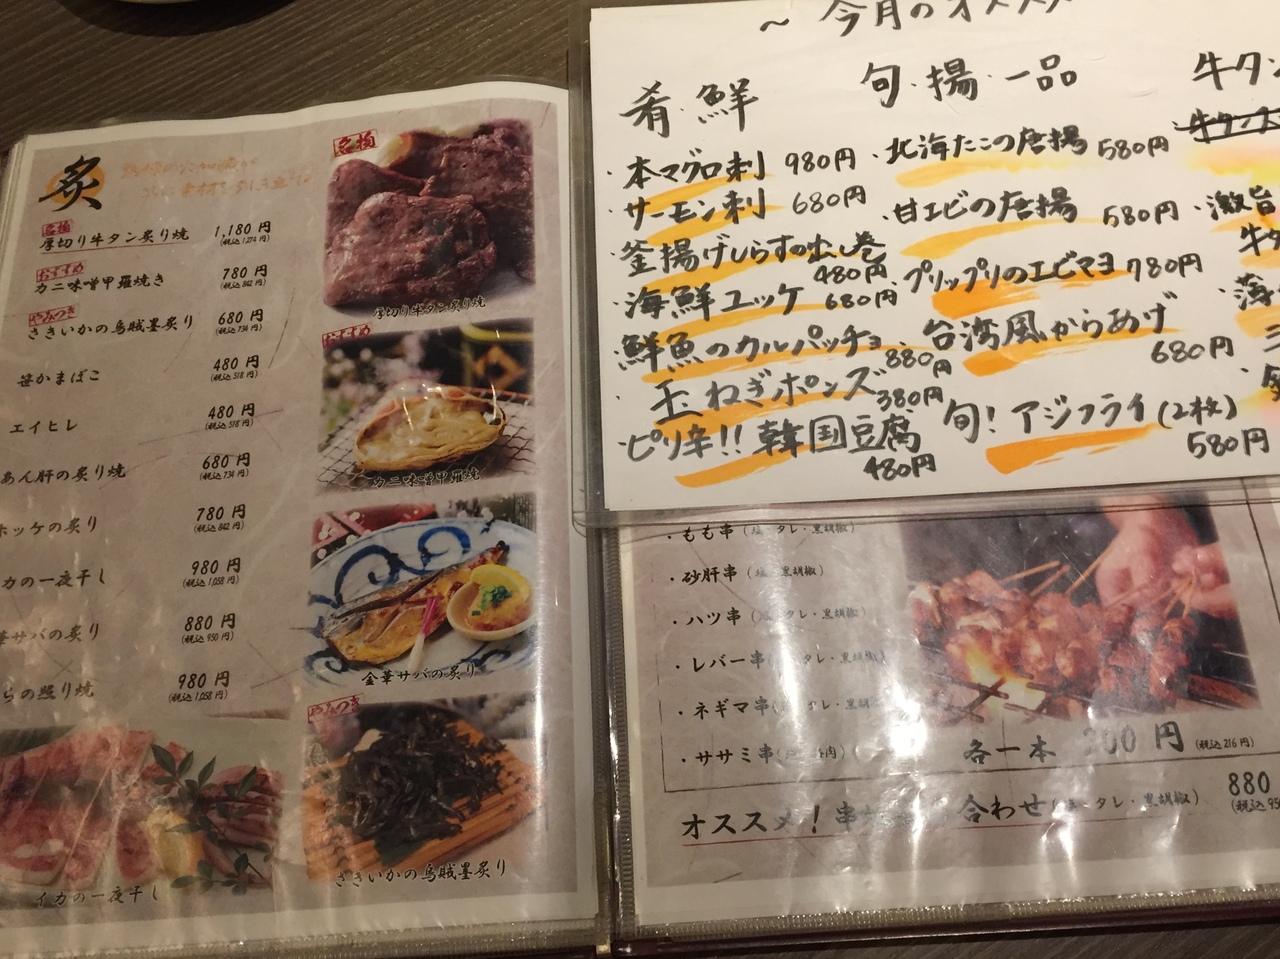 炙
名物
厚切り牛タン炙り焼 1,180円
(税込 1,274円)
おすすめ
カニ味噌甲羅焼き 780円
(税込 842円)
やみつき
さきいかの烏賊墨炙り 680円
(税込 734円)
笹かまぼこ 480円
(税込 518円)
エイヒレ 480円
(税込 518円)
あん肝の炙り焼 680円
(税込 734円)
ホッケの炙り 780円
(税込 842円)
カの一夜干し 980円
(税込 1,058円)
サバの炙り 880円
(税込 950円)
らの照り焼 980円
(税込 1,058円)
イカの一夜干し
名物
厚切り牛タン炙り焼
おすすめ
カニ味噌甲羅焼
金華サバの炙り
やみつき
さきいかの烏賊墨炙り
～今月のオススメ
肴・鮮
・本マグロ刺 980円
・サーモン刺 680円
・釜揚げしらすの出し巻
480円
・海鮮ユッケ 680円
・鮮魚のカルパッチョ
880円
・玉ねぎポンズ 380円
・ピリ辛!!韓国豆腐
480円
旬・揚・一品
・北海たこの唐揚 580円
・甘エビの唐揚 580円
・プリップリのエビマヨ 780円
・台湾風からあげ
680円
旬!アジフライ(2枚)
580円
牛タン
・激旨
牛タ
・薄
・もも串(塩・タレ・黒胡椒)
・砂肝串(塩・黒胡椒)
・ハツ串(塩・タレ・黒胡椒)
・レバー串(塩・タレ・黒胡椒)
・ネギマ串(塩・タレ・黒胡椒)
・ササミ串
各一本 200円(税込 216円)
オススメ!串 合わせ(塩・タレ・黒胡椒) 880
(税込 95